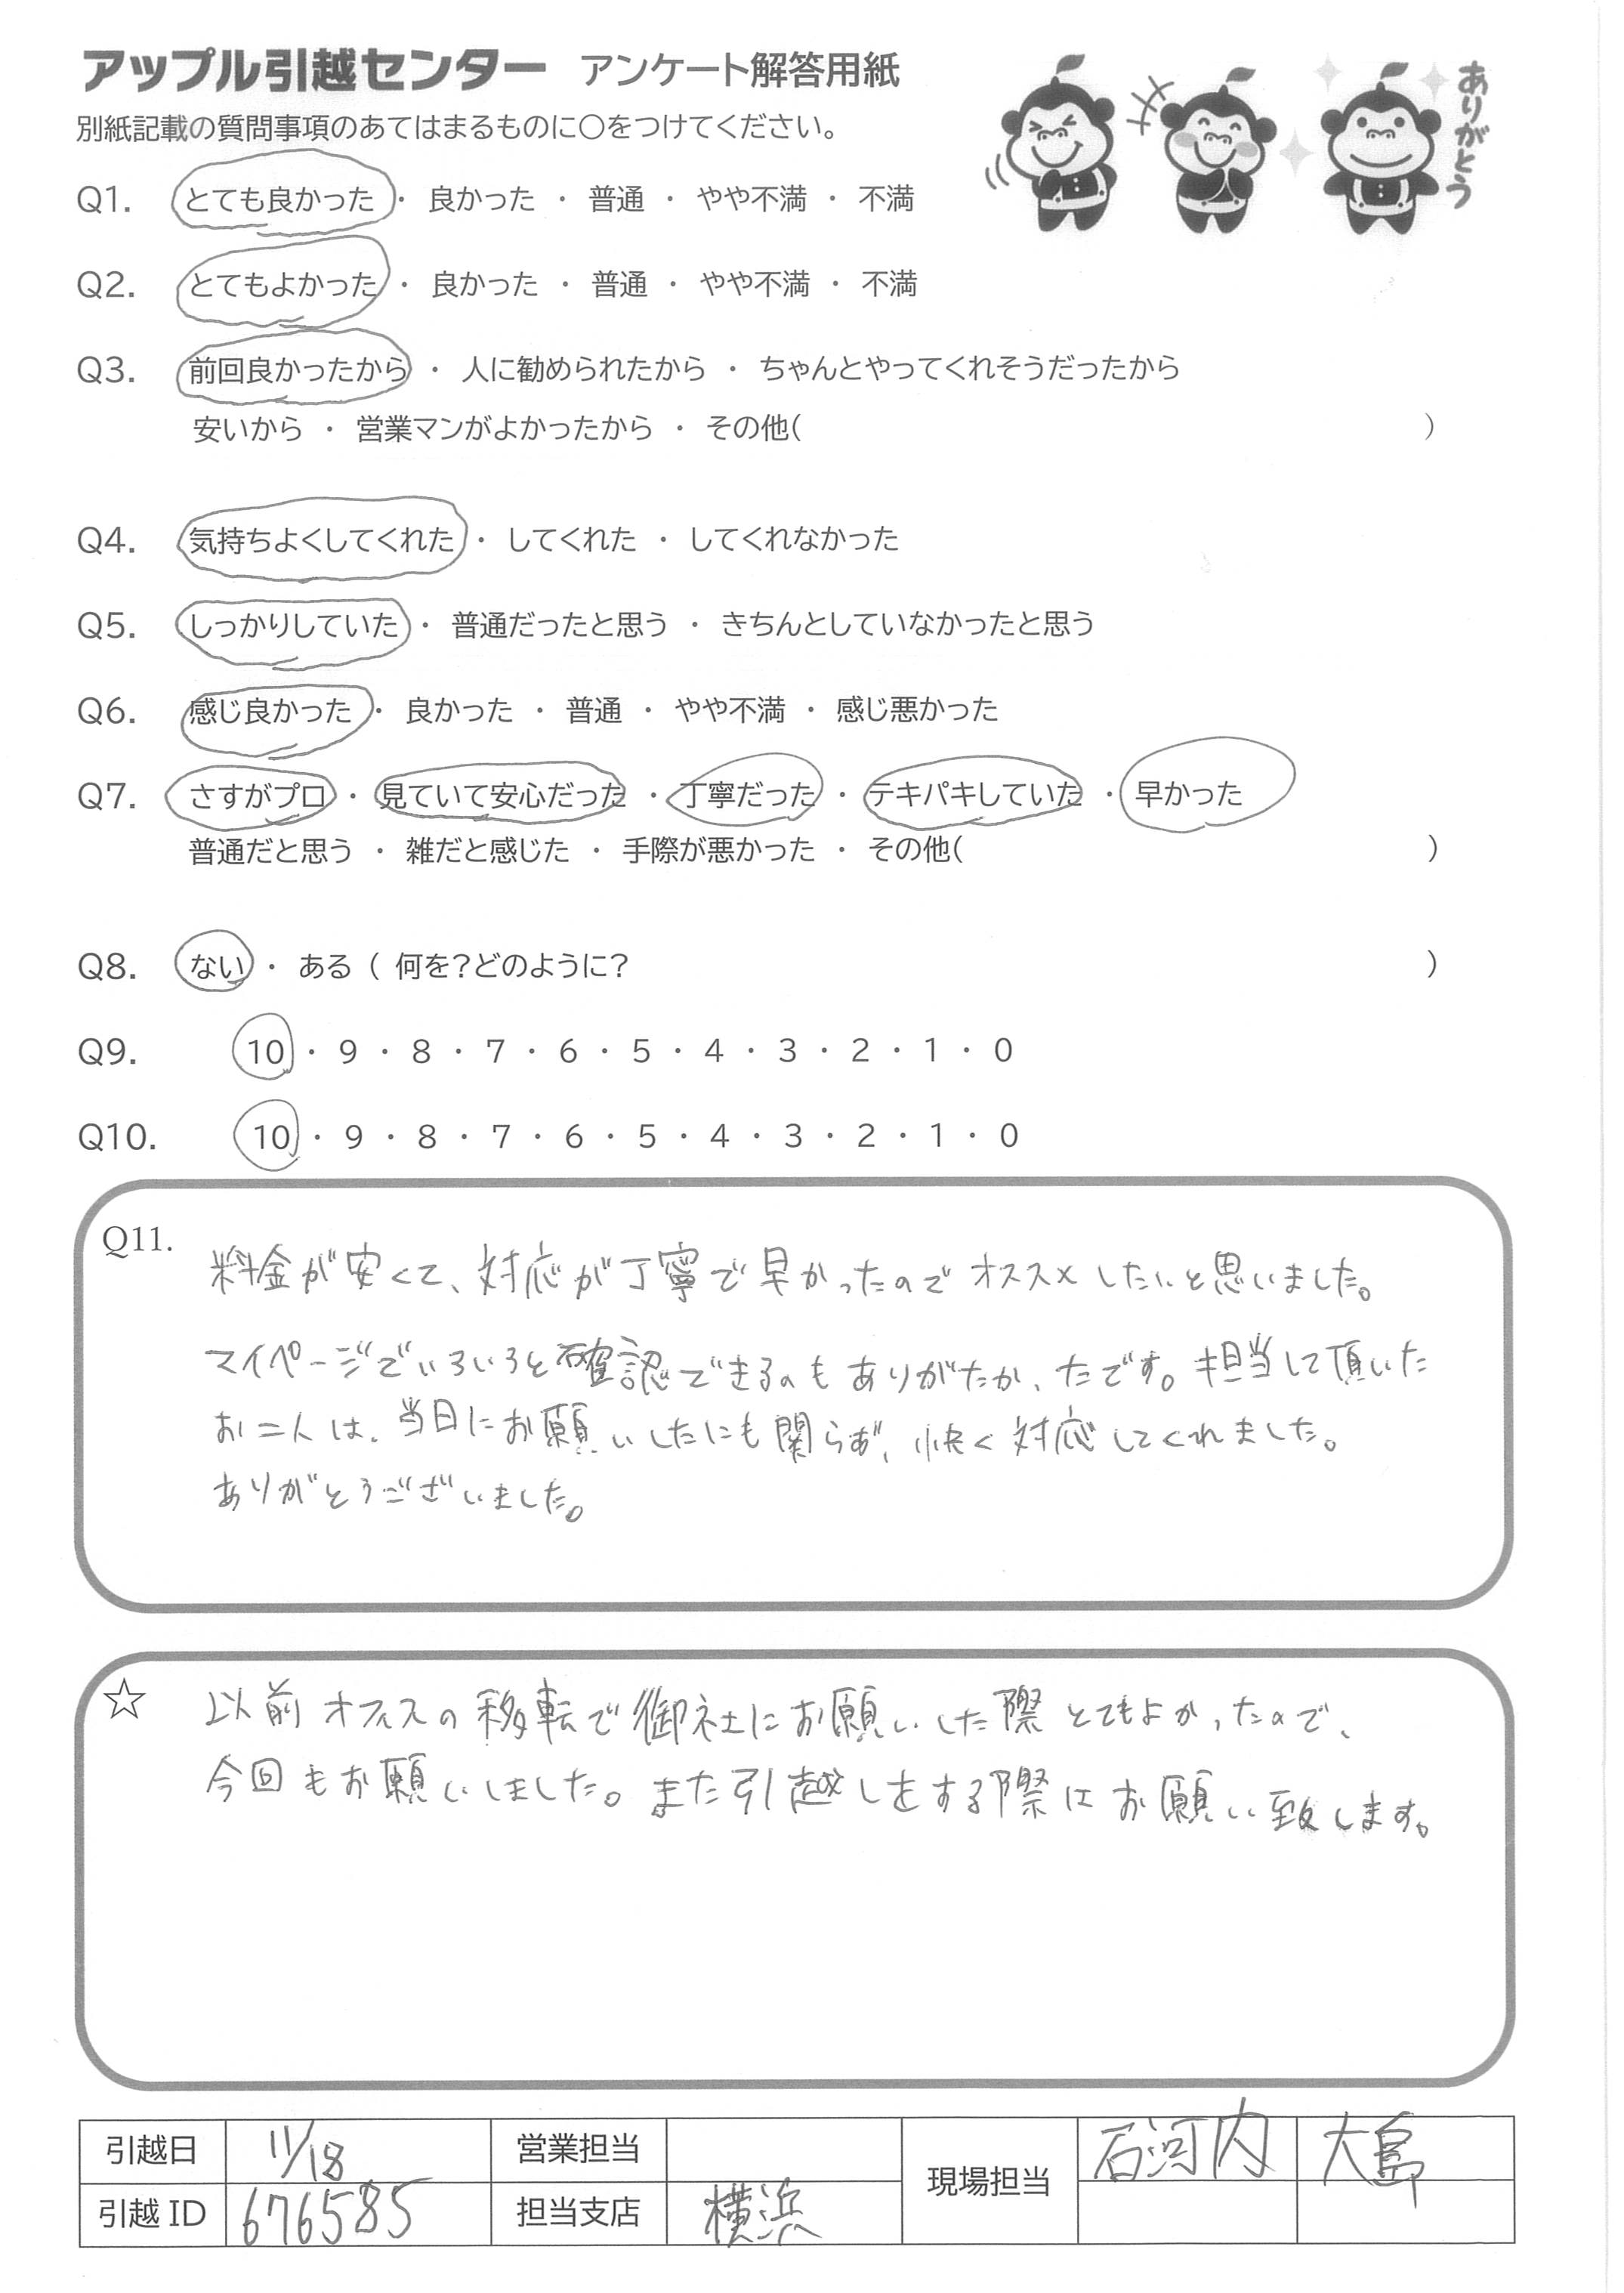 アップル引越センター アンケート解答用紙
ありがとう
別紙記載の質問事項のあてはまるものに○をつけてください。
Q1. とても良かった ・ 良かった ・ 普通 ・ やや不満 ・ 不満
Q2. とてもよかった ・ 良かった ・ 普通 ・ やや不満 ・ 不満
Q3. 前回良かったから ・ 人に勧められたから ・ ちゃんとやってくれそうだったから
安いから ・ 営業マンがよかったから ・ その他( )
Q4. 気持ちよくしてくれた ・ してくれた ・ してくれなかった
Q5. しっかりしていた ・ 普通だったと思う ・ きちんとしていなかったと思う
Q6. 感じ良かった ・ 良かった ・ 普通 ・ やや不満 ・ 感じ悪かった
Q7. さすがプロ ・ 見ていて安心だった ・ 丁寧だった ・ テキパキしていた ・ 早かった
普通だと思う ・ 雑だと感じた ・ 手際が悪かった ・ その他( )
Q8. ない ・ ある ( 何を?どのように? )
Q9. 10 ・ 9 ・ 8 ・ 7 ・ 6 ・ 5 ・ 4 ・ 3 ・ 2 ・ 1 ・ 0
Q10. 10 ・ 9 ・ 8 ・ 7 ・ 6 ・ 5 ・ 4 ・ 3 ・ 2 ・ 1 ・ 0
Q11. 料金が安くて、対応が丁寧で早かったのでオススメしたいと思いました。
マイページでいろいろと確認できるのもありがたかったです。担当して頂いた
お二人は、当日にお願いしたにも関らず、快く対応してくれました。
ありがとうございました。
☆ 以前オフィスの移転で御社にお願いした際とてもよかったので、
今回もお願いしました。また引越しをする際はお願い致します。
引越日 11/18 営業担当 現場担当 石河内 大島
引越ID 676585 担当支店 横浜